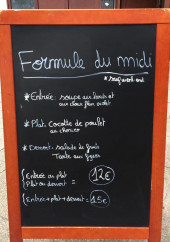 Formule du midi
* sauf week-end
* Entrée: soupe aux
ou
* Plat: Cocotte de poulet
au chorizo
* Dessert: salade de fruits
Tarte aux figues
Entrée ou plat
Plat ou dessert = 12€
Entrée + plat + dessert = 15€